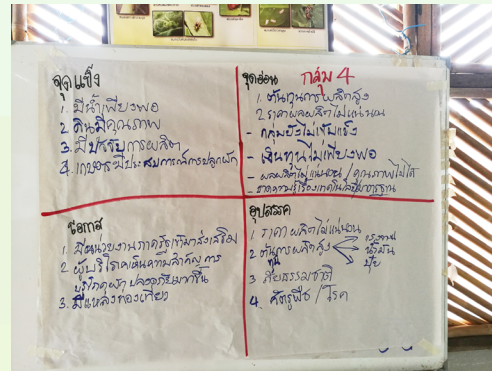 จุดแข็ง
1. มีน้ำเพียงพอ
2. ดินมีคุณภาพ
3. มีปรับการผลิต
4. เกษตรมีประสบการณ์การปลูกผัก
จุดอ่อน กลุ่ม 4
1. ต้นทุนการผลิตสูง
2. ราคาผลผลิตไม่แน่นอน
- กลุ่มยังไม่เข้มแข็ง
- เงินทุนไม่เพียงพอ
- ผลผลิตไม่แน่นอน / คุณภาพไม่ได้
- ขาดความรู้เรื่องเทคโนโลยี มาตรฐาน
โอกาส
1. มีหน่วยงานภาครัฐเข้ามาส่งเสริม
2. ผู้บริโภคเห็นความสำคัญการ
บริโภคผักปลอดภัยมากขึ้น
3. มีแหล่งท่องเที่ยว
อุปสรรค
1. ราคาผลผลิตไม่แน่นอน
2. ต้นทุนการผลิตสูง แรงงาน
น้ำมัน
ปุ๋ย
3. ภัยธรรมชาติ
4. ศัตรูพืช / โรค